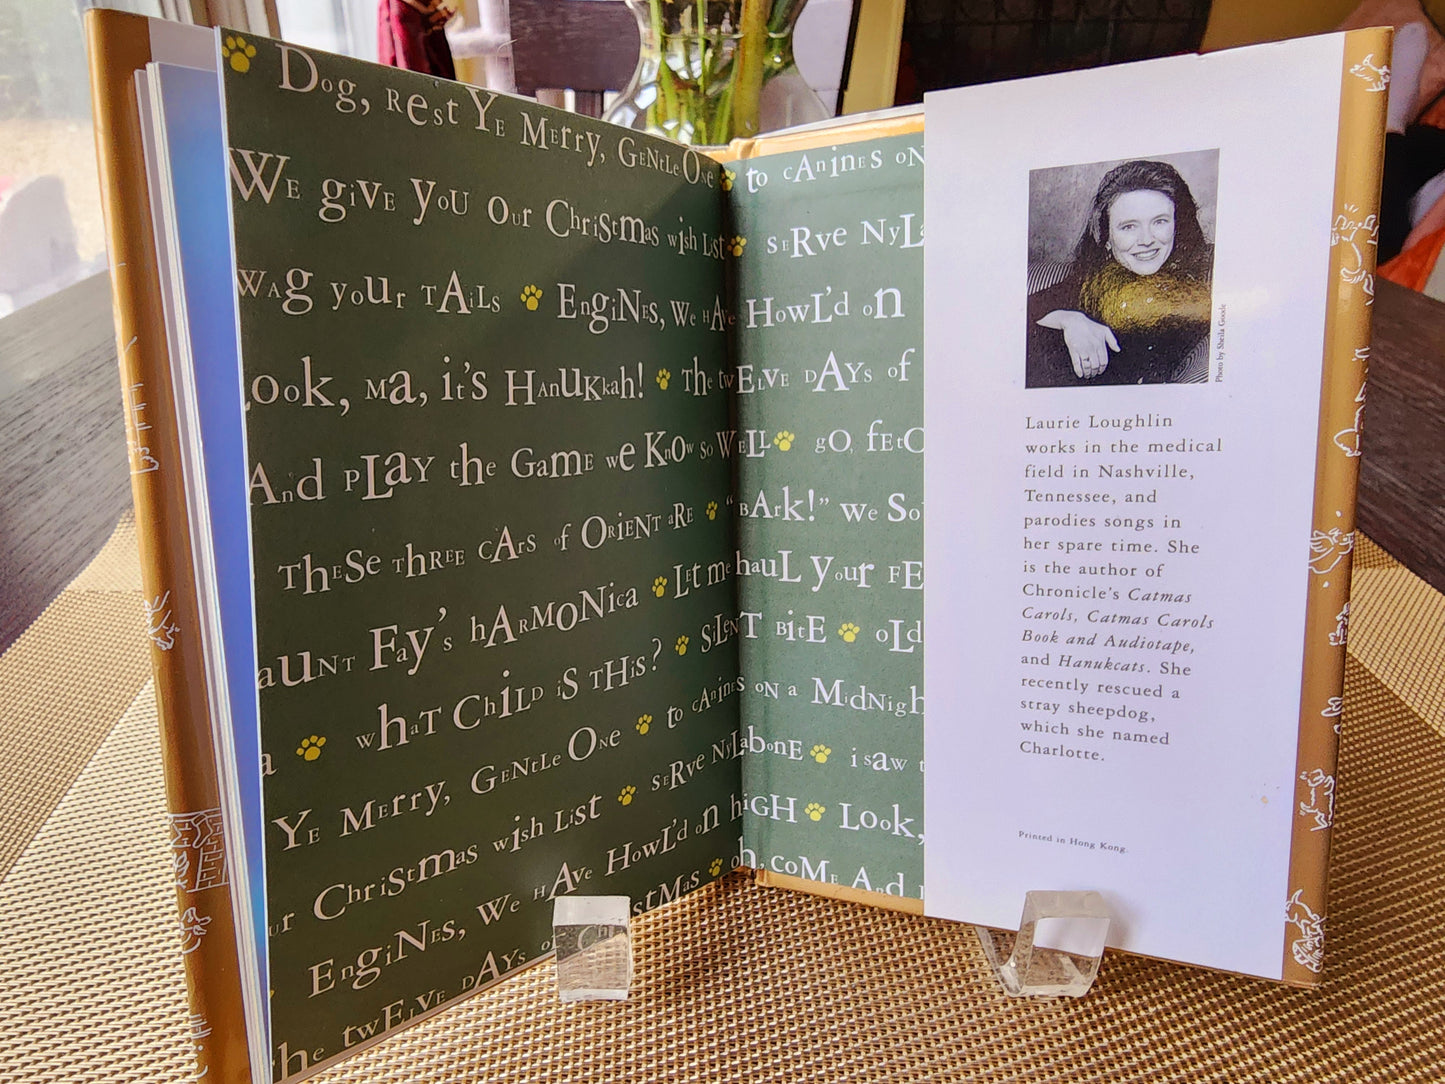 Dog, Rest Ye Merry, Gentle One
to Canines on
We give you our Christmas wish list
serve Nyla
wag your tails
Engines, We Have Howl'd on
ook, Ma, it's Hanukkah!
The twelve Days of
And play the Game we Know So Well
go, fetc
These three cars of Orient are
"Bark!" we So
aunt Fay's harmonica
Let me haul your Fe
a
what Child is this?
Silent Bite
old
Ye Merry, Gentle One
to canines on a Midnigh
ur Christmas wish List
serve Nylabone
i saw t
Engines, We Have Howl'd on high
Look,
he twelve Days of Christmas
oh, come And
Photo by Sheila Goode
Laurie Loughlin
works in the medical
field in Nashville,
Tennessee, and
parodies songs in
her spare time. She
is the author of
Chronicle's Catmas
Carols, Catmas Carols
Book and Audiotape,
and Hanukcats. She
recently rescued a
stray sheepdog,
which she named
Charlotte.
Printed in Hong Kong.